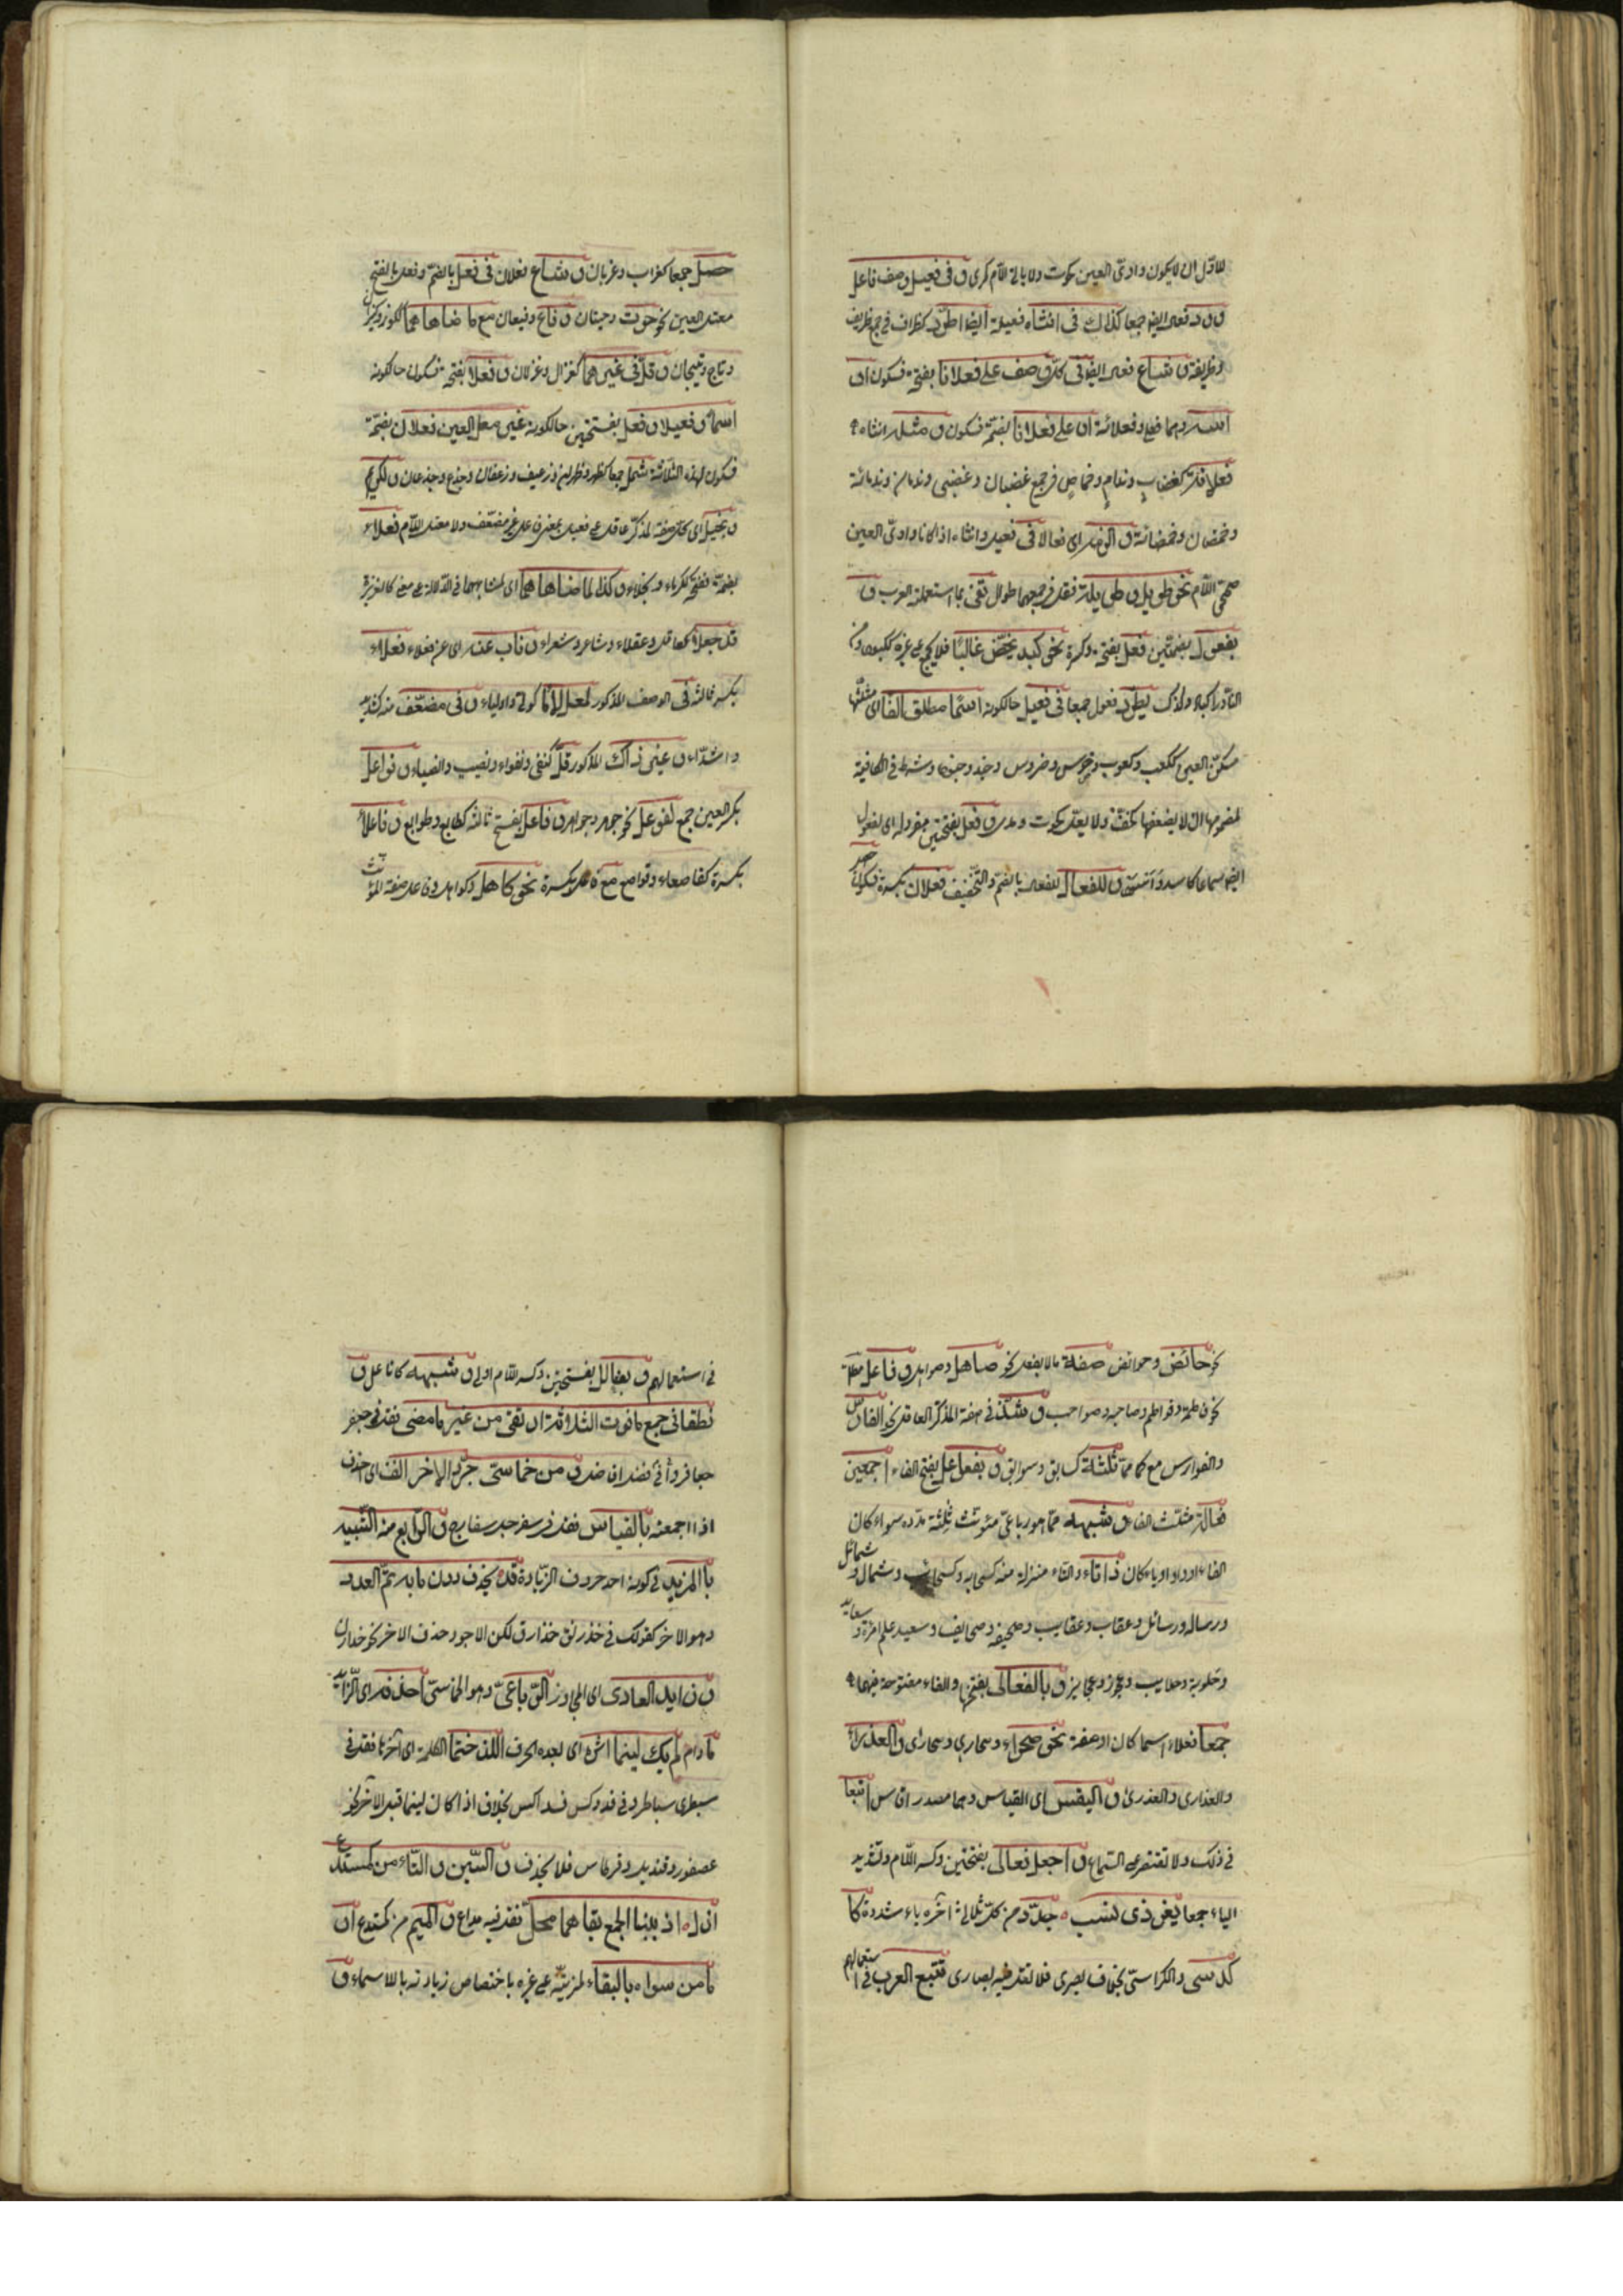 للاول ان لا يكون واوى العين كحوت ولا يائى اللام كمدى و فى فعيل وصف فاعل
ورد فعال ايضا جمعا كذاك فى انثاه فعيلة ايضا اطرد كظراف فى جمع ظريف
وظريفة و شاع فعال ايضا فى كل وصف على فعلانا بفتحة فسكون او
انثييه وهما فعلى وفعلانة او على فعلانا بضمة فسكون و مثله انثاه
فعلانة كغضاب وندام وخماص فى جمع غضبان وغضبى وندمان وندمانة
وخمصان وخمصانة و الزمه اى فعالا فى فعيل وانثاه اذا كانا واوى العين
صحيحى اللام نحو طويل و طويلة فقل فى جمعهما طوال تفى بما استعملته العرب و
بفعول بضمتين فعل بفتحة وكسرة نحو كبد يخص غالبا فلا يجمع على غيره ككبود ومن
النادر اكباد وكذاك يطرد فعول جمعا فى فعل حالكونه اسما مطلق الفا اى مثلثها
مسكن العين ككعب وكعوب وضرس وضروس وجند وجنود وشرط فى الكافية
لمضمومها ان لا يضعف كخف ولا يعل كحوت ومدى و فعل بفتحتين مفرد له اى لفعول
ايضا سماعا كاسد واسود و للفعال للفعال بالضم والتخفيف فعلان بكسرة فسكون
حصل جمعا كغراب وغربان و شاع فعلان فى فعل بالضم وفعل بالفتح
معتل العين نحو حوت وحيتان و قاع وقيعان مع ما ضاهاهما ككوز وكيزان
وتاج وتيجان و قل فى غيرهما كغزال وغزلان و فعلا بفتحة فسكون حالكونه
اسما و فعيلا و فعل بفتحتين حالكونه غير معل العين فعلان بضمة
فسكون لهذه الثلاثة شمل جمعا كظهر وظهران ورغيف ورغفان وجذع وجذعان و لكريم
و بخيل اى كل صفة لمذكر عاقل على فعيل بمعنى فاعل غير مضعف ولا معتل اللام فعلاء
بضمة ففتحة ككرماء وبخلاء و كذا لما ضاهاهما اى لمشابههما فى الدلالة على معنى كالغريزة
قد جعلا كعاقل وعقلاء وشاعر وشعراء و ناب عنه اى عن فعلاء افعلاء
بكسر ثالثه فى الوصف المذكور لمعل لاما كولى واولياء و فى مضعف منه كشديد
واشداء و غير ذاك المذكور قل كتقى وتقواء ونصيب وانصباء و فواعل
بكسر العين جمع لفوعل نحو جوهر وجواهر و فاعل بفتح ثالثه كطابع وطوابع و فاعلاء
بكسرة كقاصعاء وقواصع مع فاعل بكسرة نحو كاهل وكواهل وفاعل صفة المؤنث
نحو حائض وحوائض صفة ما لا يعقل نحو صاهل وصواهل و فاعلة مطلقا
نحو فاطمة وفواطم وصاحبة وصواحب و شذ فى صفة المذكر العاقل نحو الفارس
والفوارس مع ما ماثله كسابق وسوابق و بفعائل بفتح الفاء اجمعن
فعالة مثلث الفاء و شبهه مما هو رباعى مؤنث ثالثه مدة سواء كان
الفا او واوا او ياء كان ذا تاء والتاء منزلة منه كسحابة وسحائب وشمال وشمائل
ورسالة ورسائل وعقاب وعقايب وصحيفة وصحايف وسعيد علم امرأة وسعايد
وحلوبة وحلايب وعجوز وعجايز و بالفعالى بفتحها والفاء مفتوحة فيهما
جمعا فعلاء اسما كان او صفة نحو صحراء وصحارى وصحارى و العذراء
والعذارى والعذارى و القيس اى القياس وهما مصدر قاس اتبعا
فى ذلك ولا تقتصر على السماع و اجعل فعالى بفتحتين وكسر اللام وتشديد
الياء جمعا لغير ذى نسب جدد من كل ثلاثى آخره ياء مشددة كا
لكرسى والكراسى بخلاف بصرى فلا تقل فيه بصارى تتبع العرب فى استعمالهم
فى استعمالهم و بفعالل بفتحتين وكسر اللام اولى و شبهه كافاعل و
نطقا فى جمع ما فوق الثلاثة ارتقى من غير ما مضى فقل فى جعفر
جعافر وفى افضل افاضل و من خماسى جرد الاخر انف اى احذف
اذا اجمعته بالقياس فقل فى سفرجل سفارج و الرابع منه الشبيه
بالمزيد فى كونه احد حروف الزيادة قد يحذف دون ما به تم العدد
وهو الاخر كقولك فى خدرنق خدارق لكن الاجود حذف الاخر نحو خدارن
و زايد العادى اى المجاوز الرباعى وهو الخماسى احذفه اى الزايد
ما دام لم يك لينا اثره اى بعده الحرف اللذ ختما الكلمة اى آخرها فقل فى
سبطرى سباطر وفى فدوكس فداكس بخلاف اذا كان لينا قبل الآخر نحو
عصفور وقنديل وقرطاس فلا يحذف و السين و التاء من كمستدع
ازل اذ ببنا الجمع بقاهما مخل فقل فيه مداع و الميم من كمستدع اولى
ما من سواه بالبقاء لمزيته على غيره باختصاص زيادته بالاسماء و